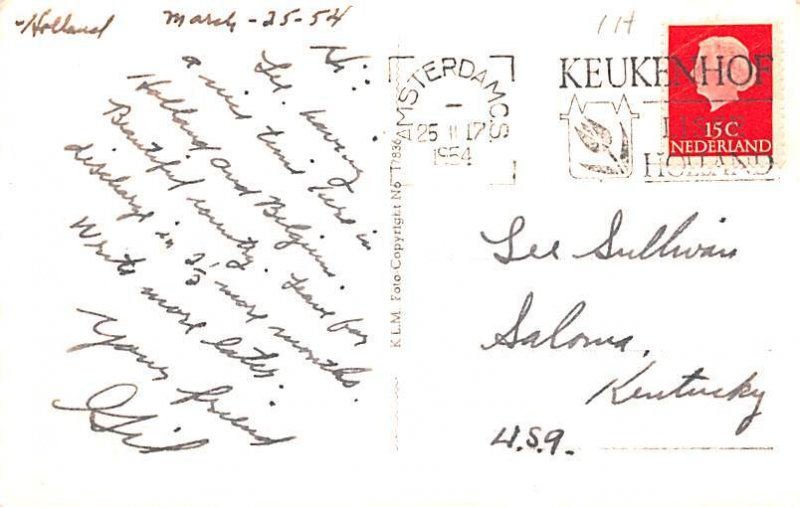 Holland March-25-54
Hi:
Lee. having
a nice time here in
Holland and Belgium.
Beautiful country. Leave for
discharge in 2½ more months.
Write more later.
Your friend
Gil
K L M Foto-Copyright No T7836
AMSTERDAM C.S.
25 II 17
1954
KEUKENHOF
LISSE
HOLLAND
15C
NEDERLAND
Lee Sullivan
Saloma,
Kentucky
U.S.A.